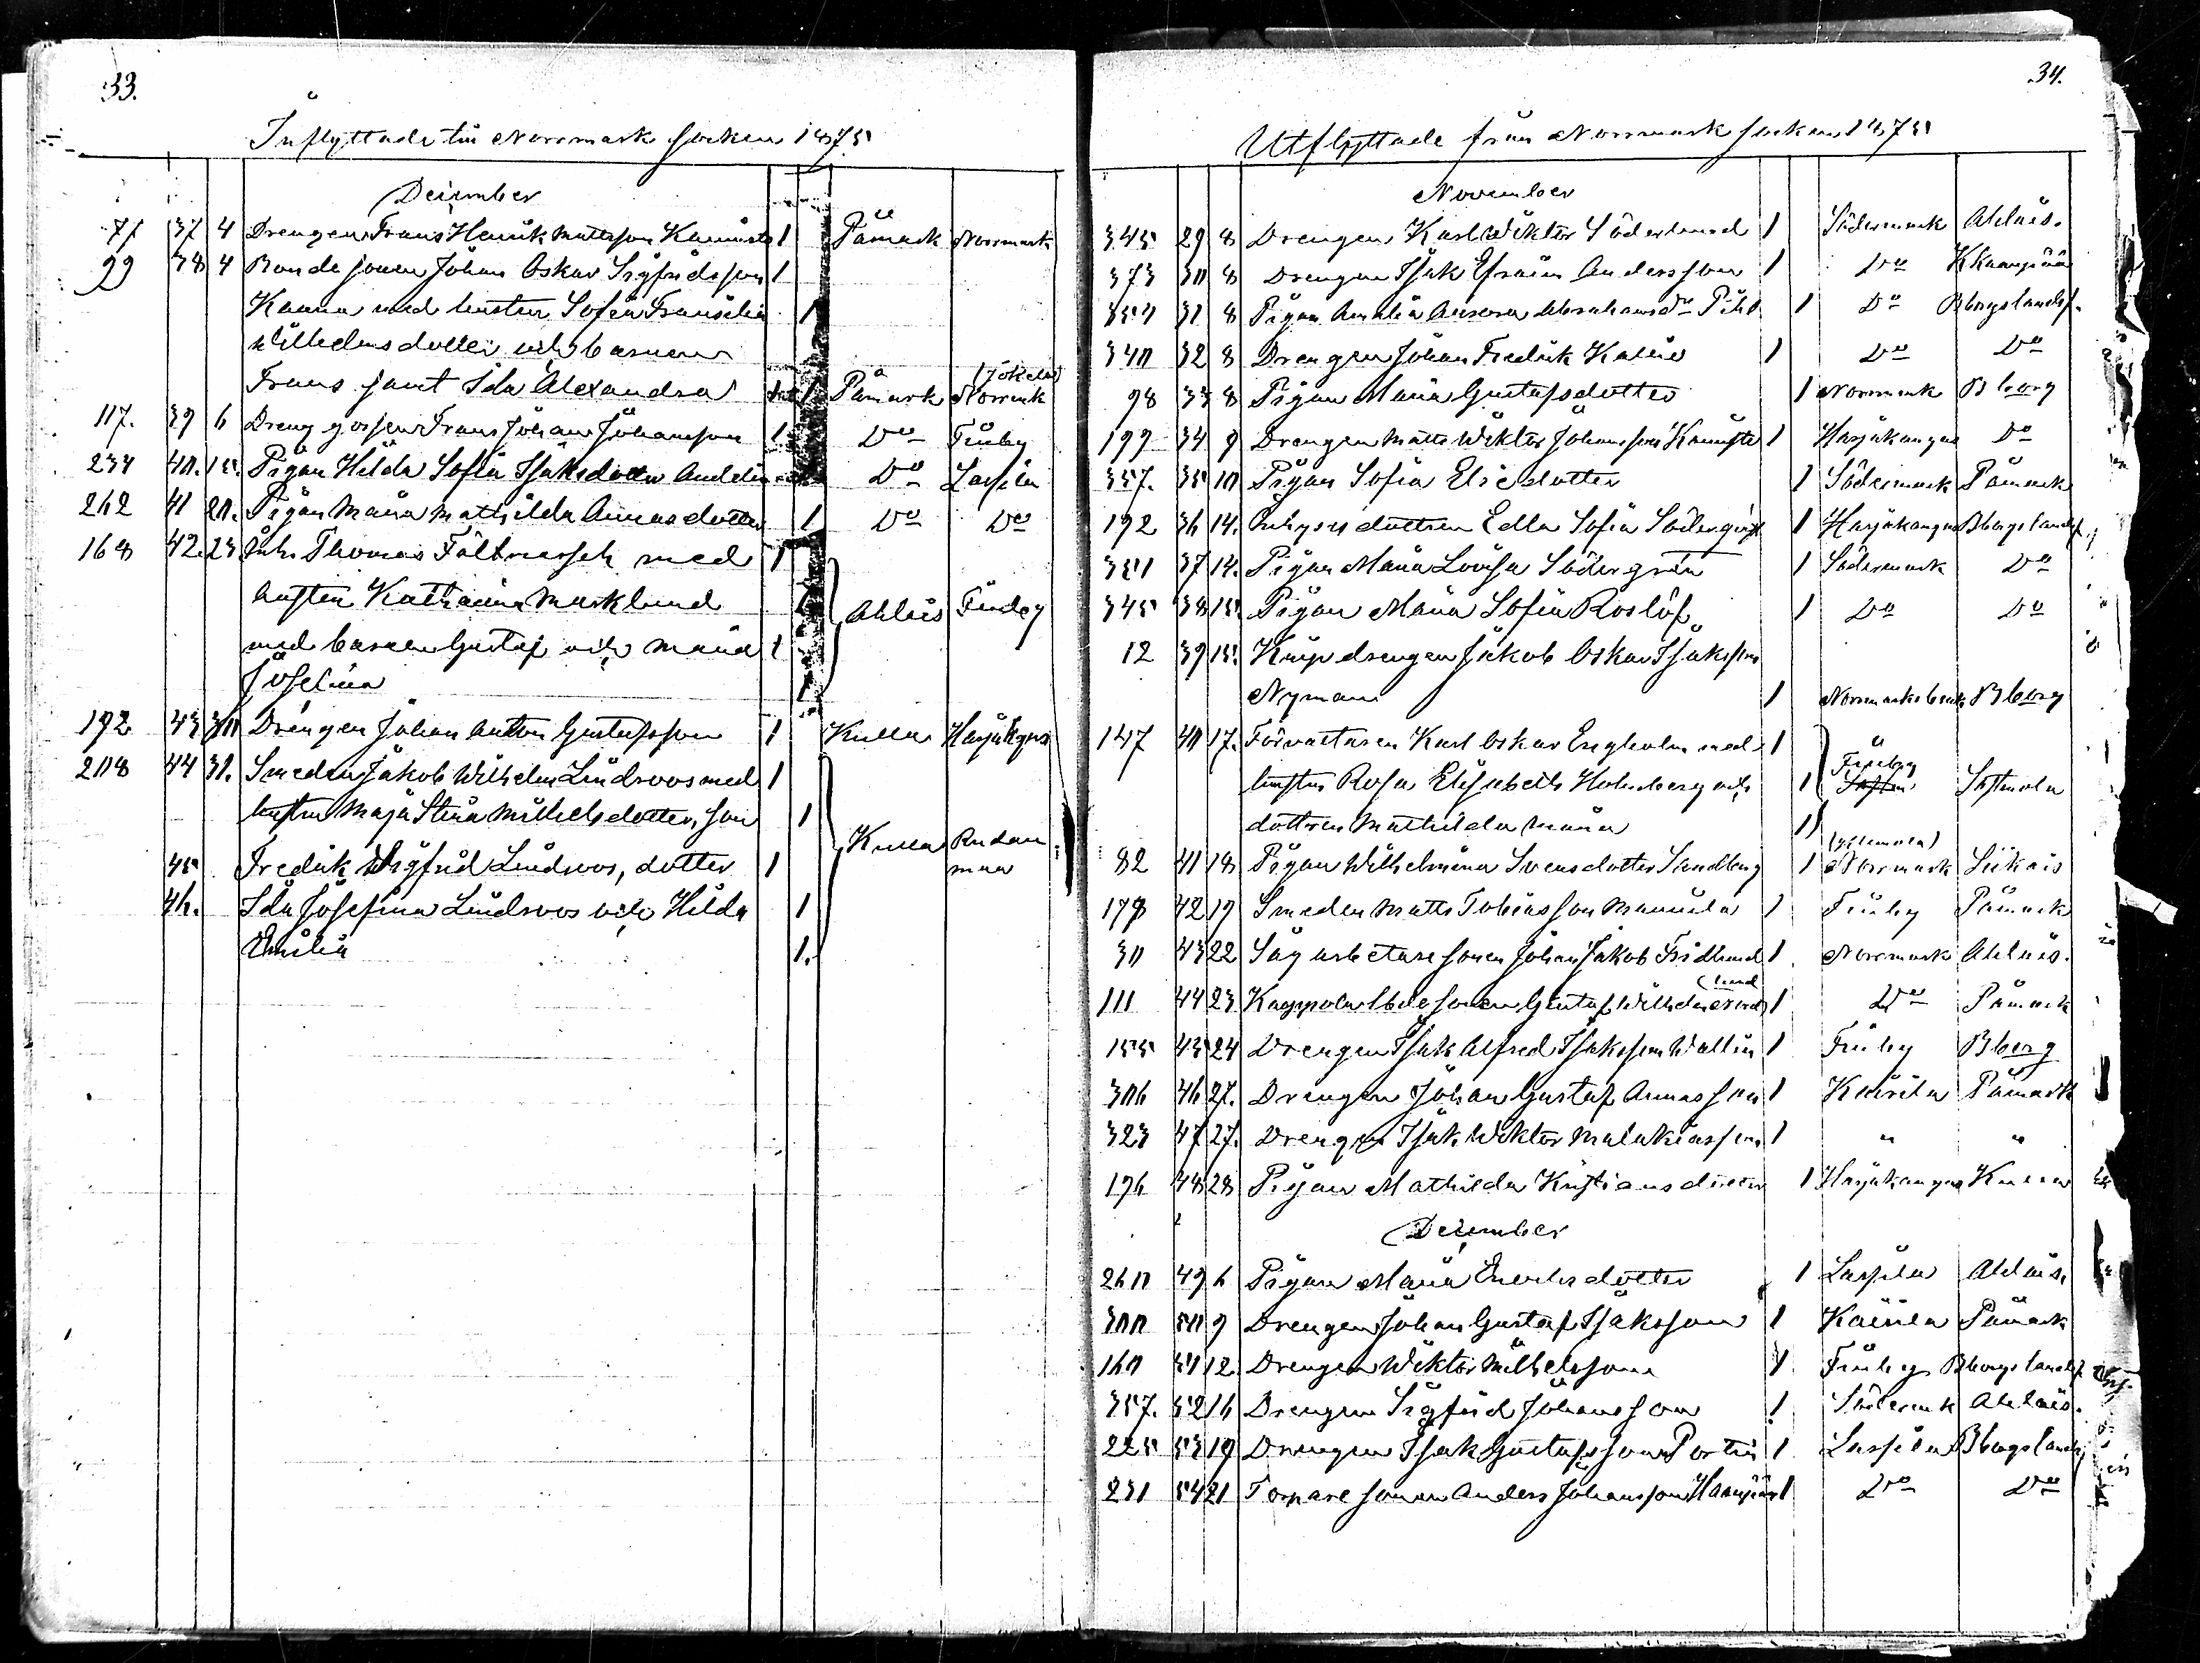 33.
Inflyttade till Norrmark socken 1875
December
77 37 4 Drengen Frans Henrik Mattsson 1 Påmark Norrmark
99 38 4 Bondesonen Johan Oskar Sigfridsson 1
Kauna med hustru Sofia Fransilia 1
Wilhelmsdotter och barnen
Frans samt Ida Alexandra Påmark Norrmk (Jokela)
117. 39 6 Drenggossen Frans Johan Johansson 1 Do Finby
234 40. 15. Pigan Hilda Sofia Isaksdotter Do Lassila
262 41 20. Pigan Maria Mathilda Annasdotter 1 Do Do
168 42. 23 Inh. Thomas Fältmarsch med 1
hustru Katharina Marklund Ahlais Finby
med barnen Gustaf och Maria 1
Josefina 1
192 43 30 Drengen Johan Anton Gustafsson 1 Kulla Harjakgas
208 44 31. Smeden Jakob Wilhelm Lindroos med 1
hustru Maja Stina Mikkelsdotter, son 1 Kulla Rudanmaa
45 Fredrik Sigfrid Lindroos, dotter 1
46. Ida Josefina Lindroos och Hilda 1
Emilia 1.
34.
Utflyttade från Norrmark socken 1875
November
345 29 8 Drengen Karl Wiktor Söderlund 1 Södermark Ahlais.
373 30 8 Drengen Isak Efraim Andersson 1 Do
354 31 8 Pigan Amalia Aurora Abrahamsdr Pihl 1 Do Bborgs landsf.
340 32 8 Drengen Johan Fredrik Kallio 1 Do Do
98 33 8 Pigan Maria Gustafsdotter 1 Norrmark Bborg
199 34 9 Drengen Matts Wiktor Johansson 1 Harjakangas Do
357. 35 10 Pigan Sofia Eliedotter 1 Södermark Påmark
192 36 14. Inhyses dottren Edla Sofia Söderqvist 1 Harjakangas Bborgs landsf.
351 37 14. Pigan Maria Lovisa Södergrén 1 Södermark Do
345 38 15. Pigan Maria Sofia Roslöf 1 Do Do
12 39 15. drengen Jakob Oskar Isaksson
Nyman 1 Norrmarks bruk Bborg
147 40 17. Förvaltaren Karl Oskar Engholm med 1
hustru Rosa Elisabeth Holmberg och 1 Finby Sastmola
dottren Mathilda Maria 1
82 41 18 Pigan Wilhelmina Svensdotter Sandberg 1 Norrmark Siikais
178 42 19 Smeden Matts Tobiasson Mannila 1 Finby Påmark
30 43 22 Sågarbetaresonen Johan Jakob Fridlund 1 Norrmark Ahlais.
111 44 23 sonen Gustaf Wilhelm 1 Do Påmark
155 45 24 Drengen Isak Alfred Isaksson Wallin 1 Finby Bborg
306 46 27. Drengen Johan Gustaf Annasson 1 Kairila Påmark
323 47 27. Drengen Isak Wiktor Malakiasson 1 " "
196 48 28 Pigan Mathilda Kristiansdotter 1 Harjakangas Kulla
December
260 49 6 Pigan Maria Enochsdotter 1 Lassila Ahlais.
300 50 9 Drengen Johan Gustaf Isaksson 1 Kairila Påmark
160 51 12 Drengen Wiktor Mikkelsson 1 Finby Bborgs landsf.
357. 52 16 Drengen Sigfrid Johansson 1 Södermk Ahlais.
225 53 19 Drengen Isak Gustafsson Portin 1 Lassila Bborgs landsf
231 54 21 Torparesonen Anders Johansson 1 Do Do